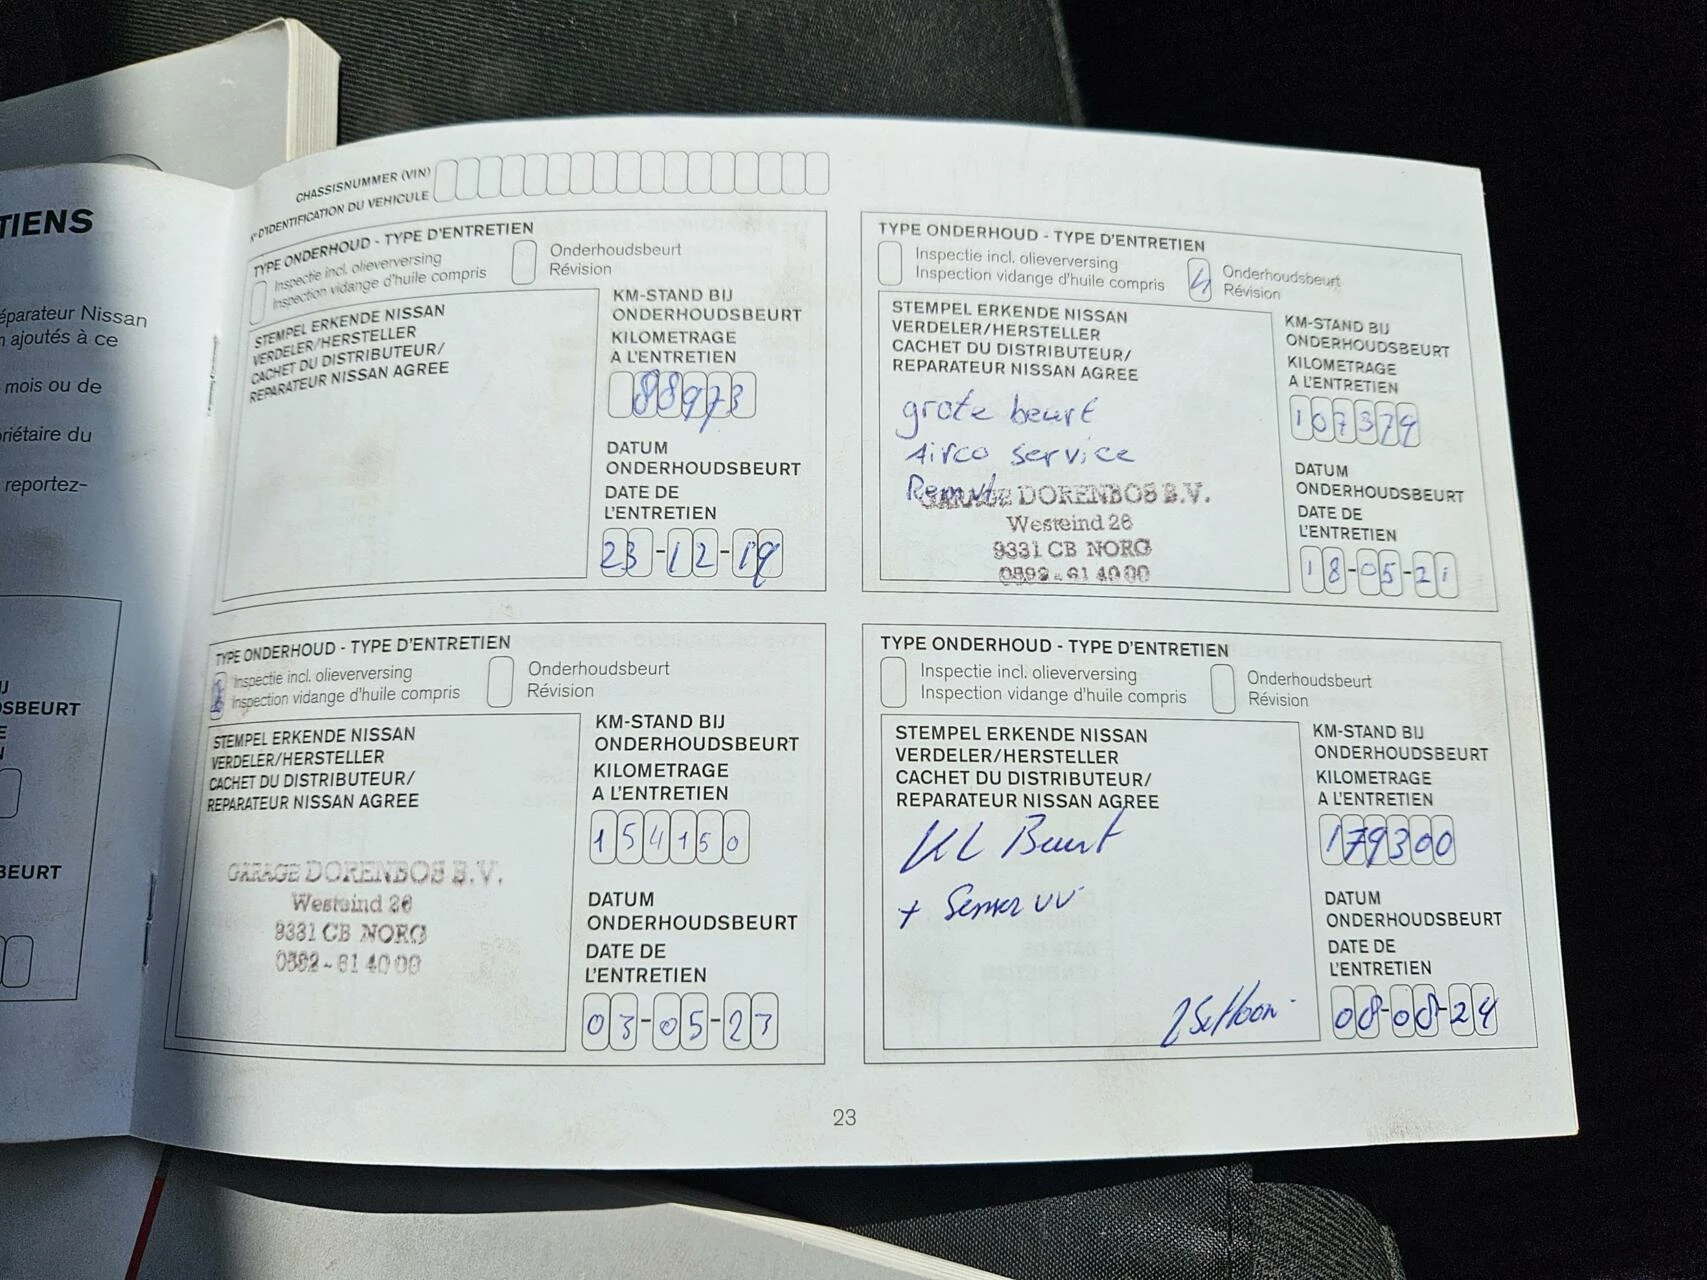 TIENS
éparateur Nissan
n ajoutés à ce
mois ou de
riétaire du
reportez-
SBEURT
BEURT
CHASSISNUMMER (VIN)
N° D'IDENTIFICATION DU VEHICULE
TYPE ONDERHOUD - TYPE D'ENTRETIEN
Inspectie incl. olieverversing
Inspection vidange d'huile compris
Onderhoudsbeurt
Révision
STEMPEL ERKENDE NISSAN
VERDELER/HERSTELLER
CACHET DU DISTRIBUTEUR/
REPARATEUR NISSAN AGREE
KM-STAND BIJ
ONDERHOUDSBEURT
KILOMETRAGE
A L'ENTRETIEN
88973
DATUM
ONDERHOUDSBEURT
DATE DE
L'ENTRETIEN
23-12-19
TYPE ONDERHOUD - TYPE D'ENTRETIEN
Inspectie incl. olieverversing
Inspection vidange d'huile compris
Onderhoudsbeurt
Révision
STEMPEL ERKENDE NISSAN
VERDELER/HERSTELLER
CACHET DU DISTRIBUTEUR/
REPARATEUR NISSAN AGREE
grote beurt
Airco service
GARAGE DORENBOS B.V.
Westeind 26
9331 CB NORG
0592-61 40 00
KM-STAND BIJ
ONDERHOUDSBEURT
KILOMETRAGE
A L'ENTRETIEN
107379
DATUM
ONDERHOUDSBEURT
DATE DE
L'ENTRETIEN
18-05-21
TYPE ONDERHOUD - TYPE D'ENTRETIEN
Inspectie incl. olieverversing
Inspection vidange d'huile compris
Onderhoudsbeurt
Révision
STEMPEL ERKENDE NISSAN
VERDELER/HERSTELLER
CACHET DU DISTRIBUTEUR/
REPARATEUR NISSAN AGREE
GARAGE DORENBOS B.V.
Westeind 26
9331 CB NORG
0592-61 40 00
KM-STAND BIJ
ONDERHOUDSBEURT
KILOMETRAGE
A L'ENTRETIEN
154150
DATUM
ONDERHOUDSBEURT
DATE DE
L'ENTRETIEN
03-05-23
TYPE ONDERHOUD - TYPE D'ENTRETIEN
Inspectie incl. olieverversing
Inspection vidange d'huile compris
Onderhoudsbeurt
Révision
STEMPEL ERKENDE NISSAN
VERDELER/HERSTELLER
CACHET DU DISTRIBUTEUR/
REPARATEUR NISSAN AGREE
KL Beurt
+
KM-STAND BIJ
ONDERHOUDSBEURT
KILOMETRAGE
A L'ENTRETIEN
179300
DATUM
ONDERHOUDSBEURT
DATE DE
L'ENTRETIEN
08-08-24
23